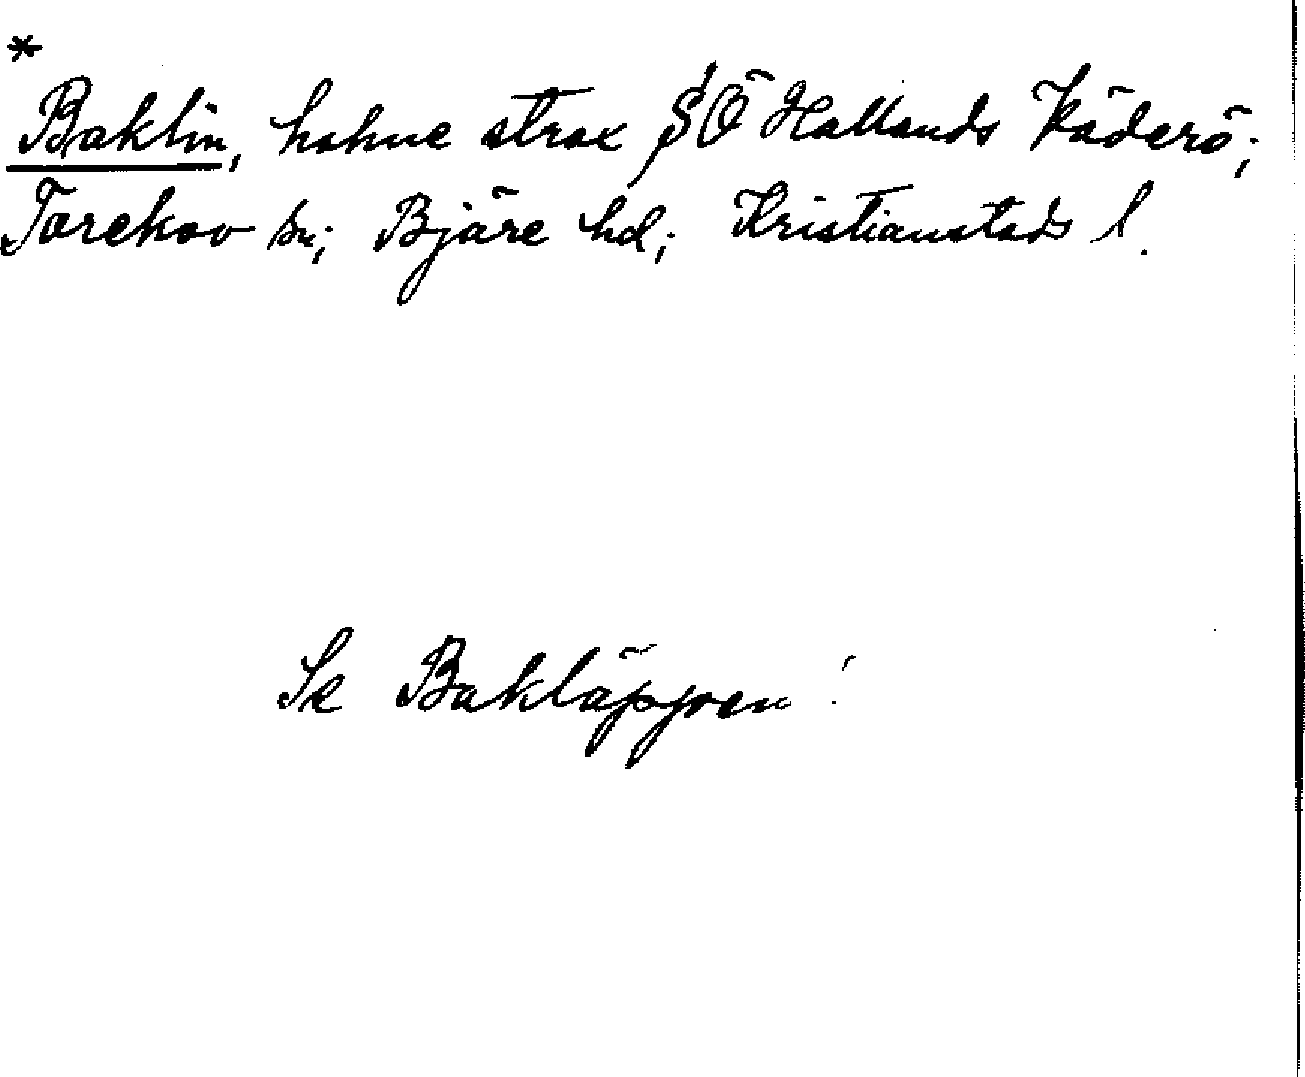 *
Baklin, holme strax SÖ Hallands Väderö;
Torekov sn; Bjäre hd; Kristianstads l.
Se Bakläpparen!